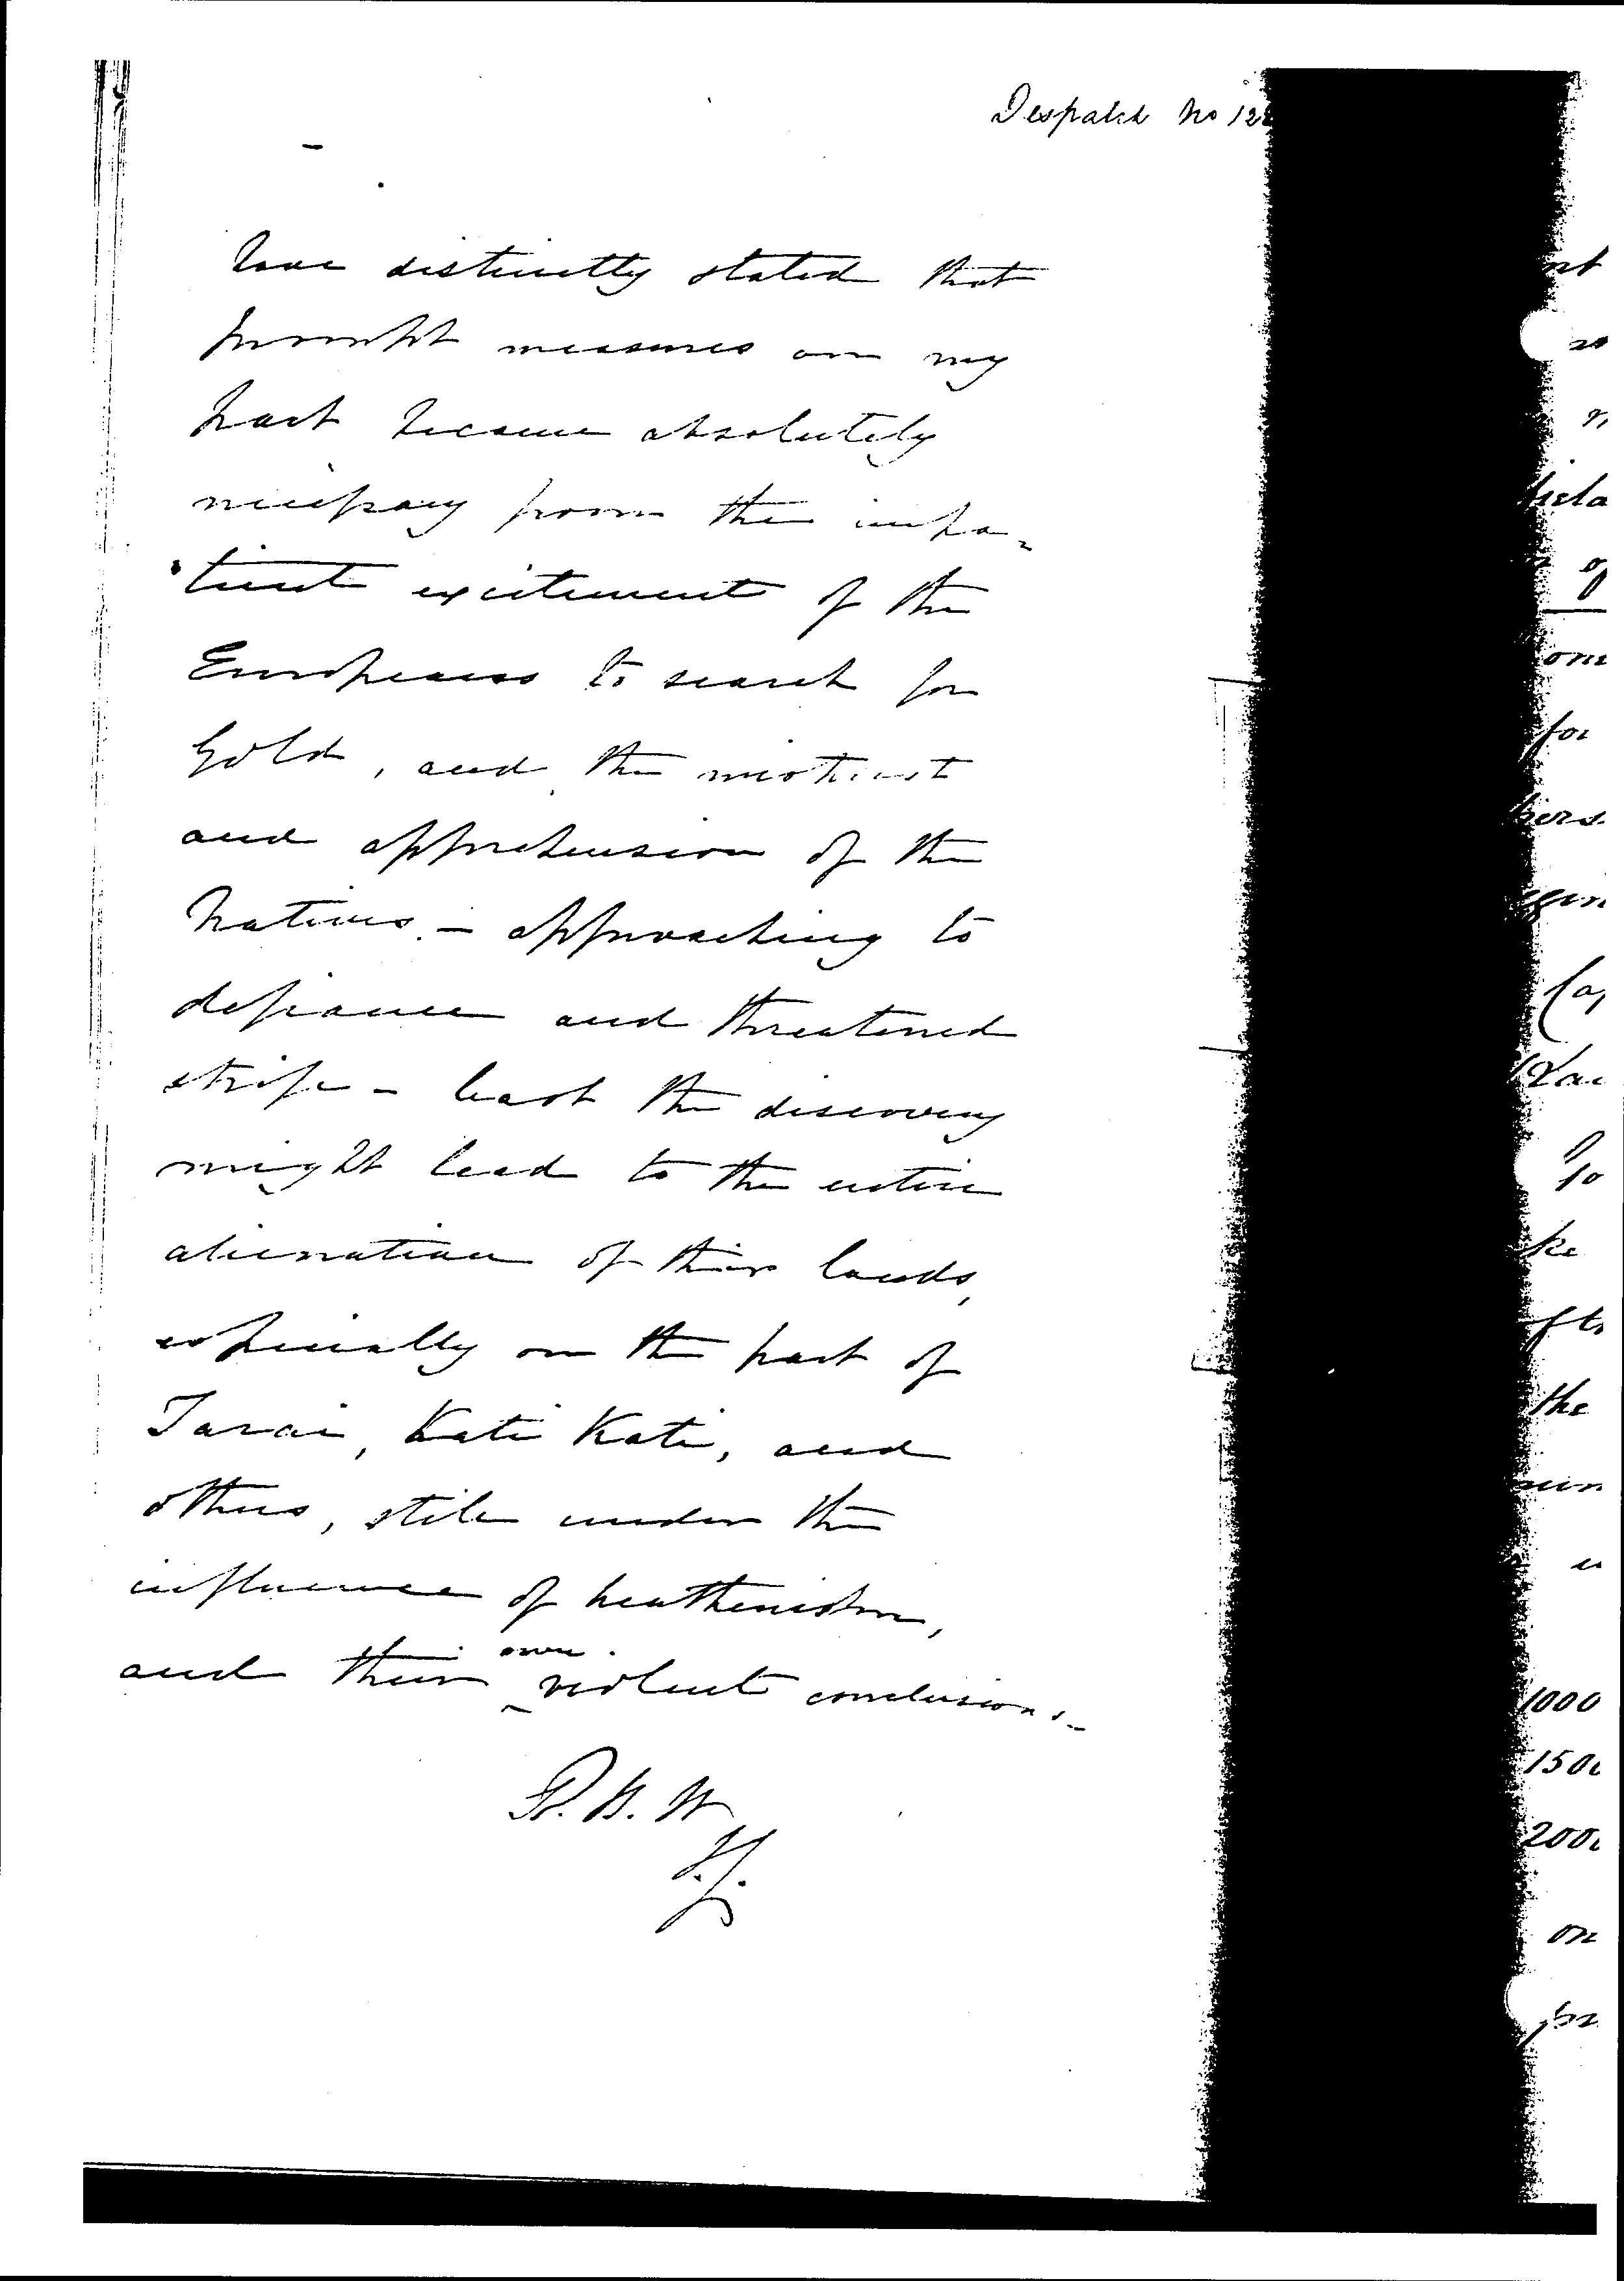 Despatch No 12
have distinctly stated that
prompt measures on my
part became absolutely
necessary from the impa-
tient excitement of the
Europeans to search for
Gold, and the mistrust
and apprehension of the
Natives - approaching to
defiance and threatened
strife - least the discovery
might lead to the entire
alienation of their lands,
especially on the part of
Taraia, Kati Kati, and
others, still under the
influence of heathenism,
and their own violent conclusions.-
R. H. W
nt
n
of
one
for
hers
ke
the
1000
150
200
on